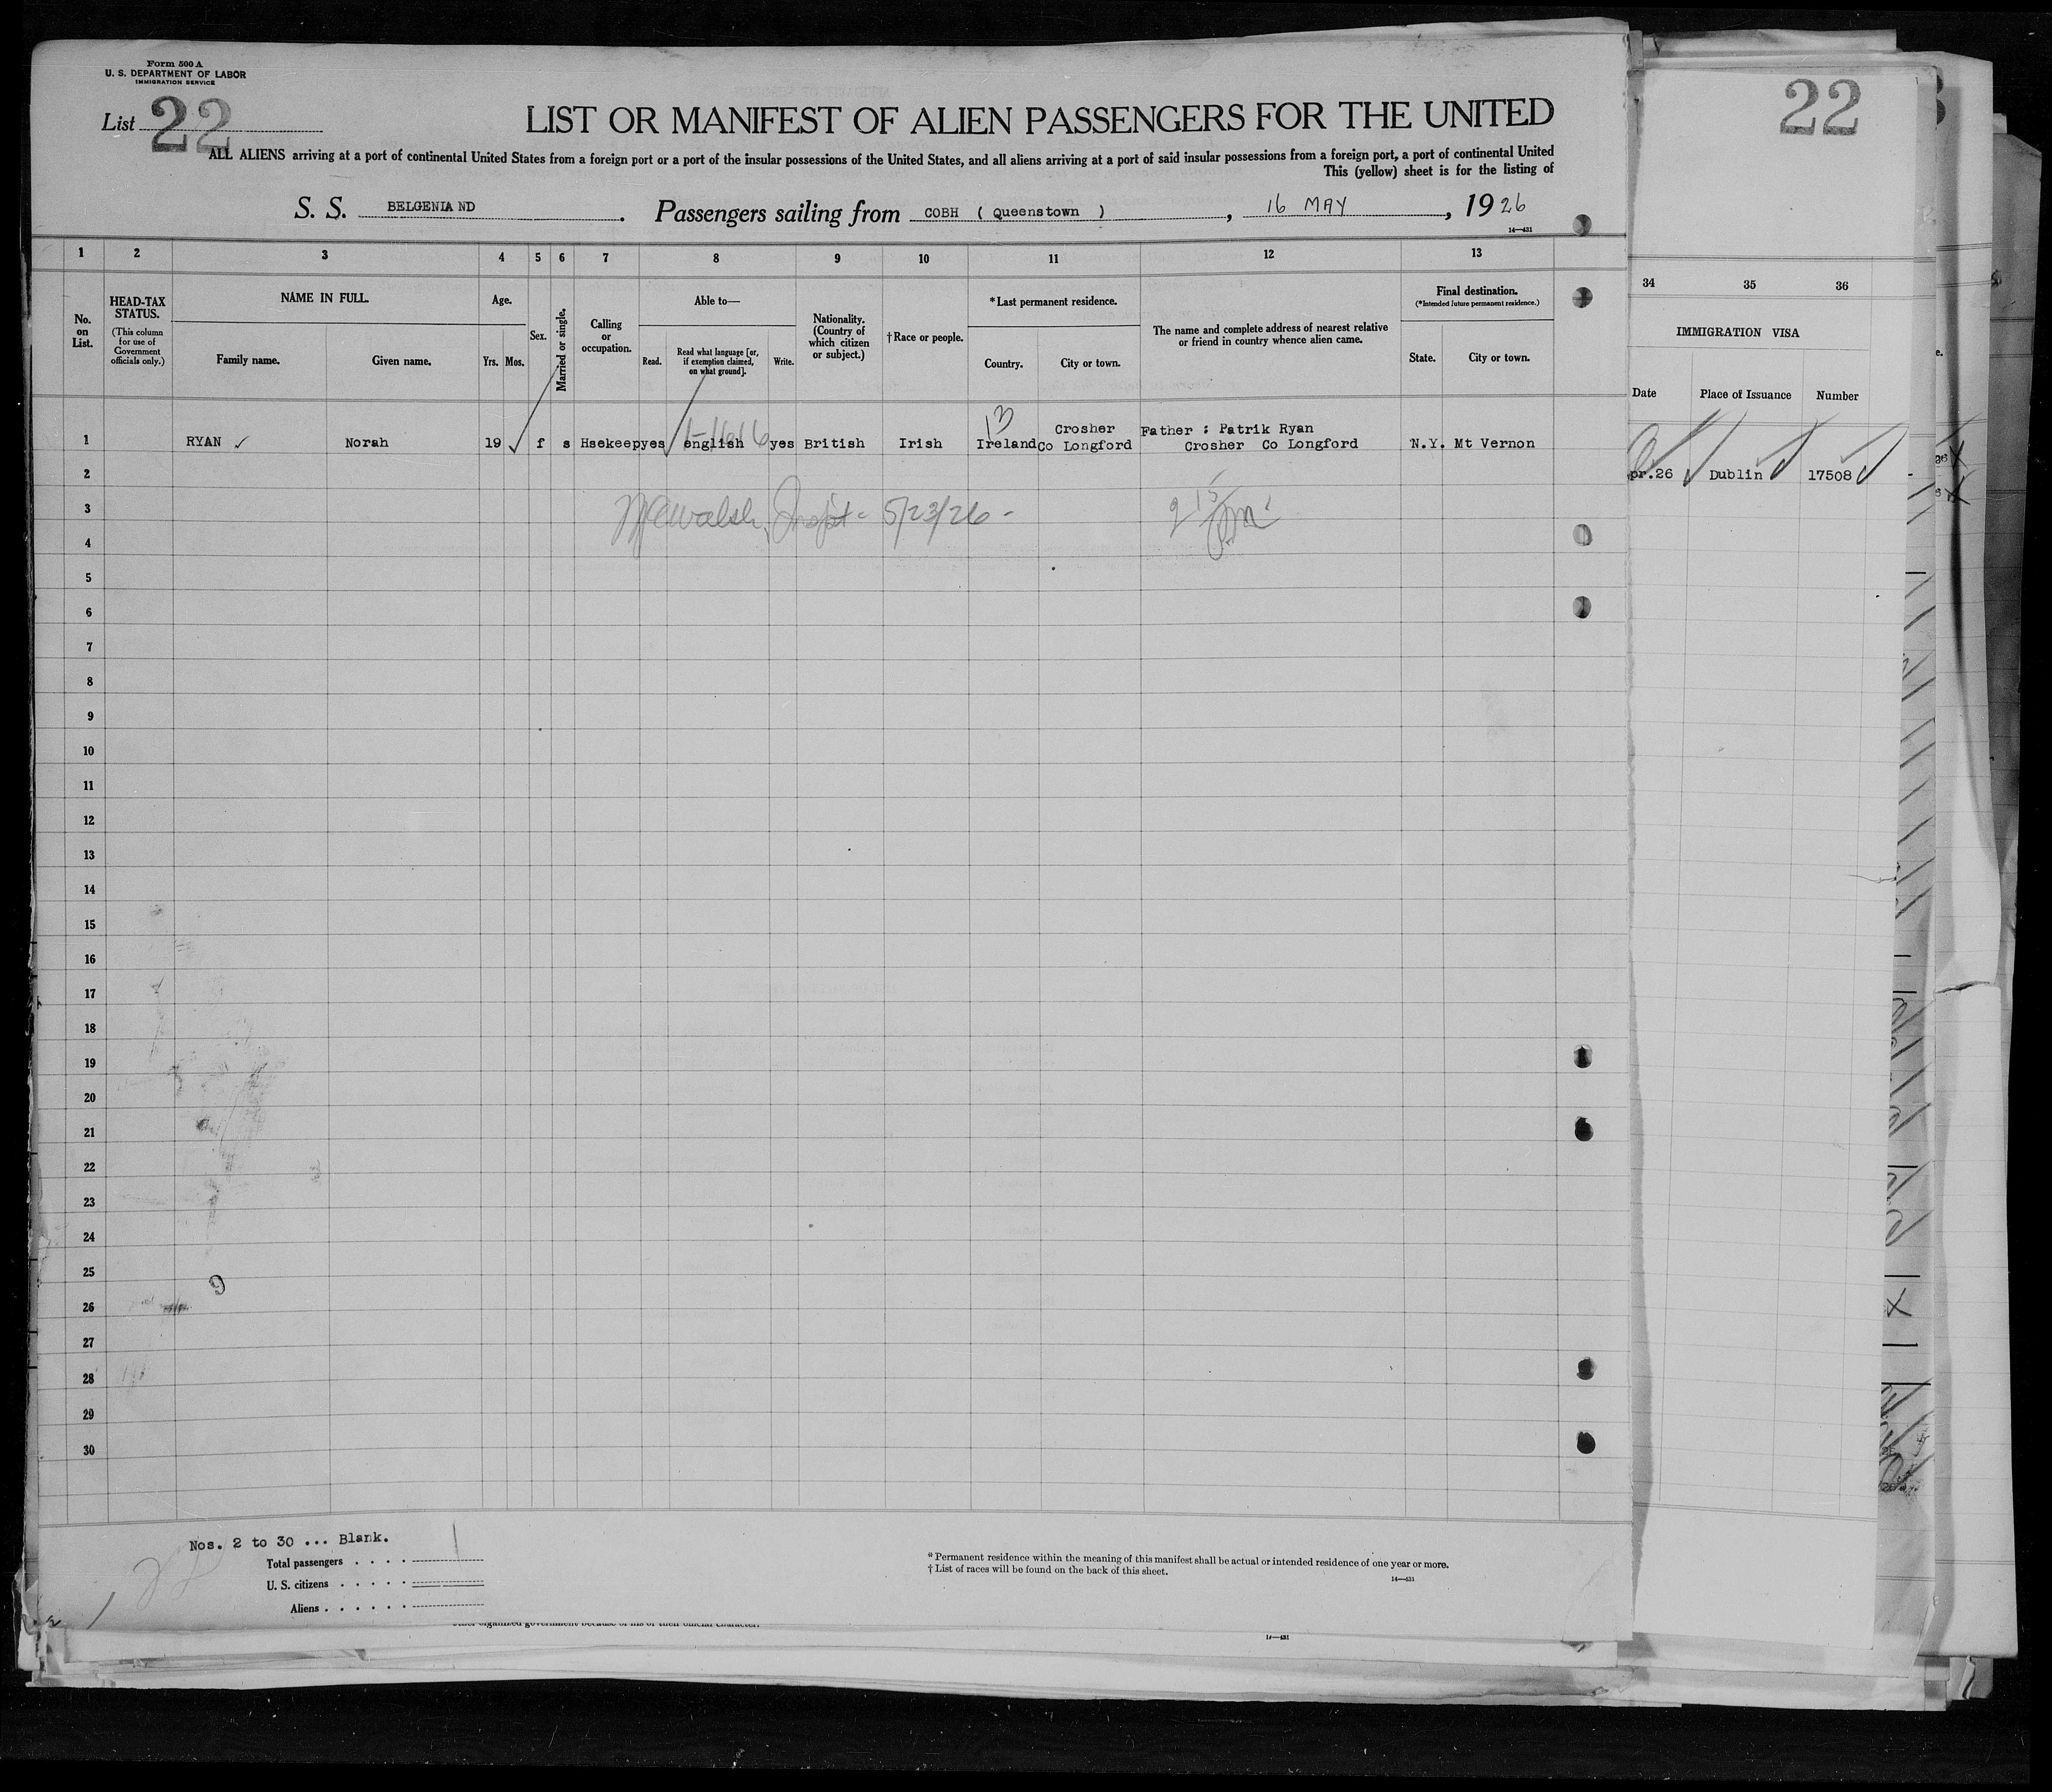 Form 500 A
U. S. DEPARTMENT OF LABOR
IMMIGRATION SERVICE
List 22
LIST OR MANIFEST OF ALIEN PASSENGERS FOR THE UNITED
ALL ALIENS arriving at a port of continental United States from a foreign port or a port of the insular possessions of the United States, and all aliens arriving at a port of said insular possessions from a foreign port, a port of continental United
This (yellow) sheet is for the listing of
S. S. BELGENIA ND . Passengers sailing from COBH ( Queenstown ) , 16 MAY , 1926
14—431
1 2 3 4 5 6 7 8 9 10 11 12 13
No. on List.
HEAD-TAX STATUS.
(This column for use of Government officials only.)
NAME IN FULL.
Family name. Given name.
Age.
Yrs. Mos.
Sex.
Married or single.
Calling or occupation.
Able to—
Read. Read what language [or, if exemption claimed, on what ground]. Write.
Nationality. (Country of which citizen or subject.)
†Race or people.
*Last permanent residence.
Country. City or town.
The name and complete address of nearest relative or friend in country whence alien came.
Final destination.
(*Intended future permanent residence.)
State. City or town.
13
Crosher Father : Patrik Ryan
1 RYAN Norah 19 f s Hsekeep yes english yes British Irish Ireland Co Longford Crosher Co Longford N.Y. Mt Vernon
2
3
5/23/26
4
5
6
7
8
9
10
11
12
13
14
15
16
17
18
19
20
21
22
23
24
25
26
27
28
29
30
Nos. 2 to 30 ... Blank.
Total passengers . . . . 1
U. S. citizens . . . . .
Aliens . . . . . .
* Permanent residence within the meaning of this manifest shall be actual or intended residence of one year or more.
† List of races will be found on the back of this sheet.
14—431
14—431
22
34 35 36
IMMIGRATION VISA
Date Place of Issuance Number
pr.26 Dublin 17508